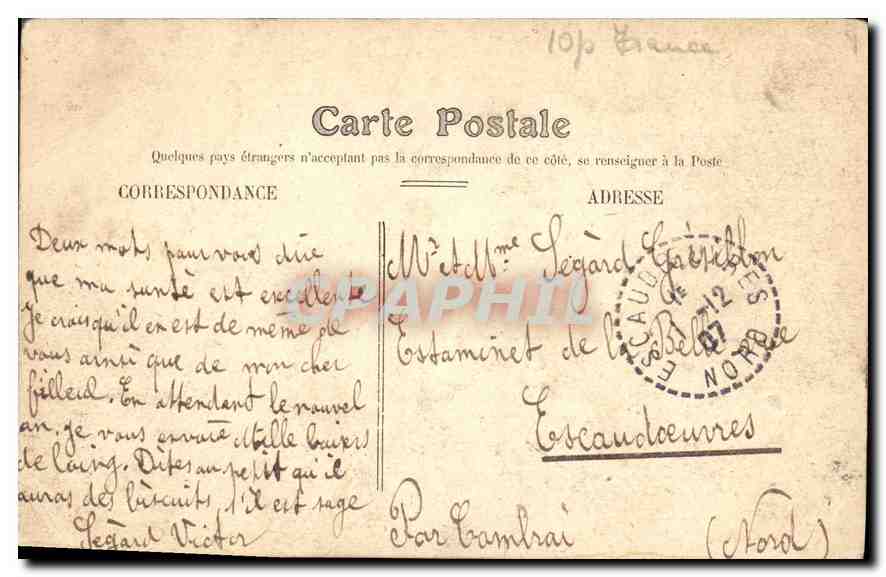 10p France
Carte Postale
Quelques pays étrangers n'acceptant pas la correspondance de ce côté, se renseigner à la Poste
CORRESPONDANCE
Deux mots pour vous dire
que ma santé est excellente
Je crois qu'il en est de meme de
vous ainsi que de mon cher
filleul. En attendant le nouvel
an, je vous envoie Mille baisers
de loing. Dites au petit qu'il
auras des biscuits s'il est sage
Ségard Victor
ADRESSE
Mr et Mme Ségàrd
Estaminet de la Belle
Escaudœuvres
Par Cambrai (Nord)
ESCAUDŒUVRES
12
07
NORD
CPAPHIL